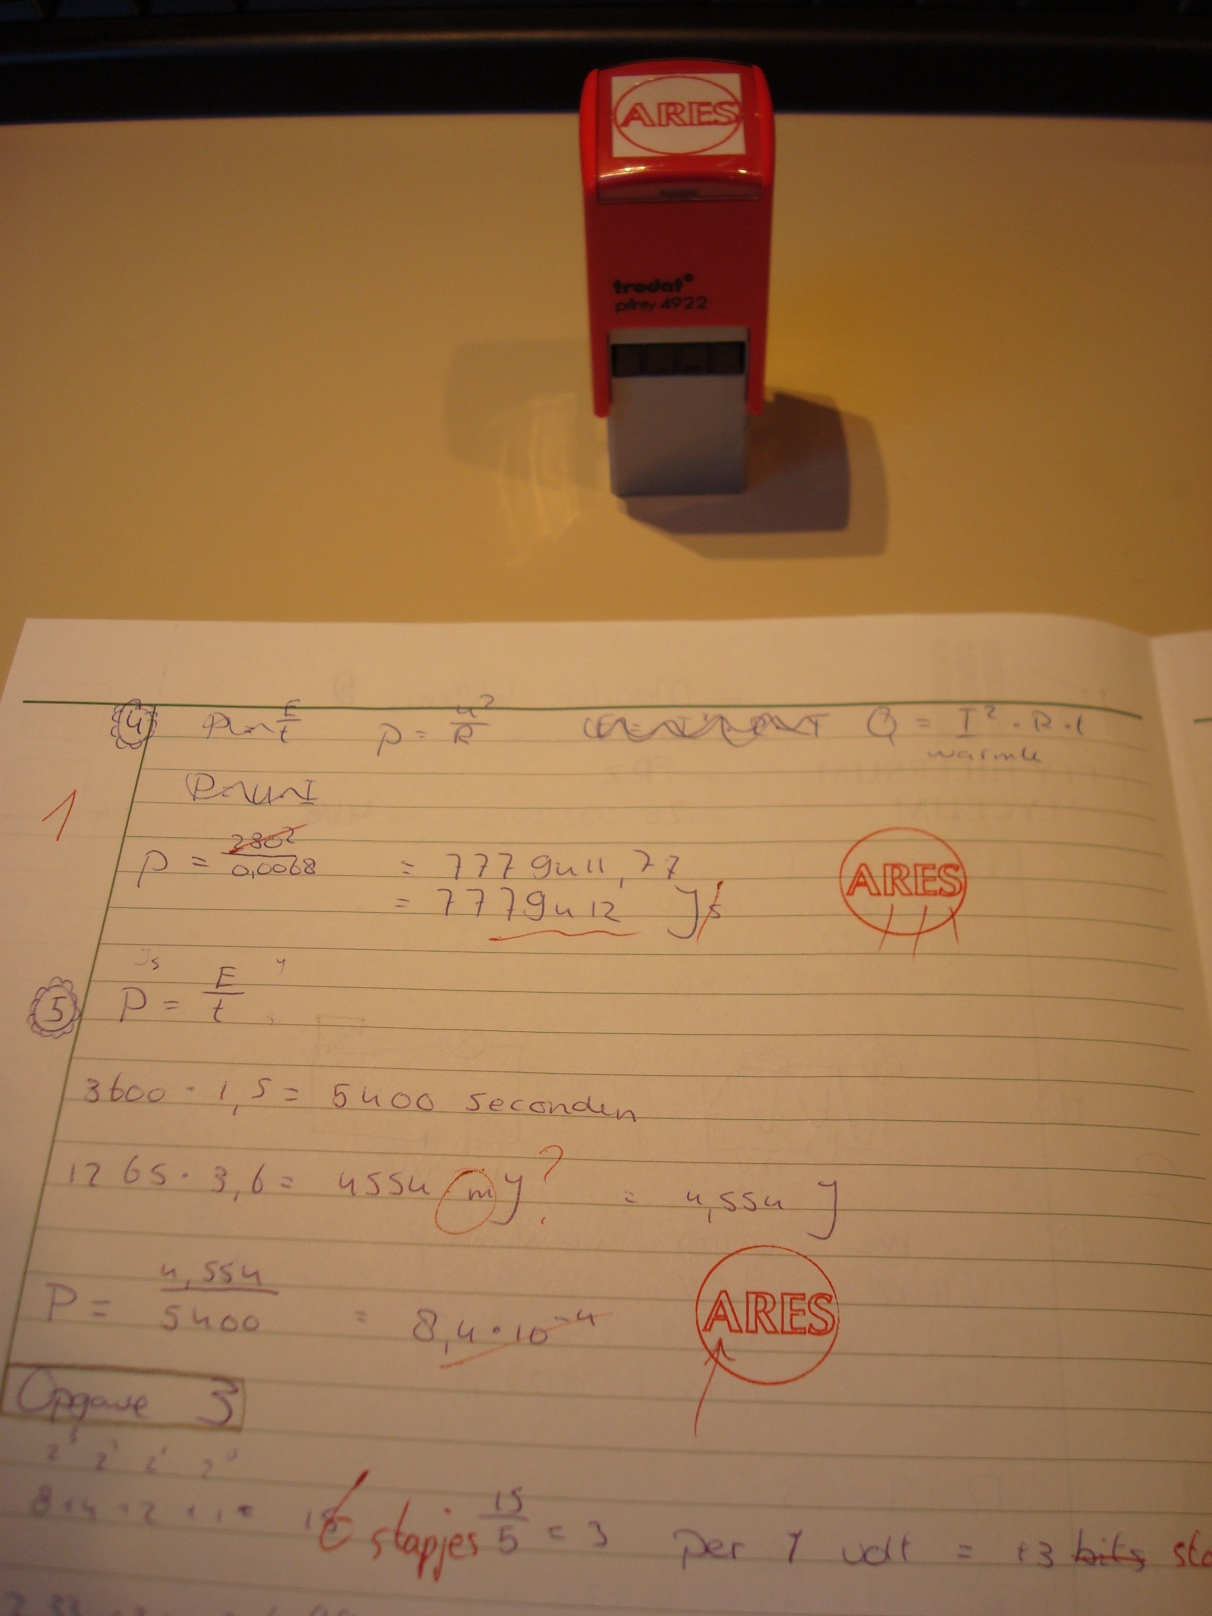 ARES
trodat
printy 4922
4 P = E/t P = u²/R Q = I² · R · t
warmte
P = U · I
1
P = 280²/0,0068 = 7779411,77
= 7779412 J/s
ARES
Js
5 P = E/t
3600 · 1,5 = 5400 seconden
1265 · 3,6 = 4554 mJ ? = 4,554 J
P = 4,554/5400 = 8,4 · 10⁻⁴
ARES
Opgave 3
2³ 2² 2¹ 2⁰
8 + 4 + 2 + 1 = 15 stapjes 15/5 = 3 per 1 volt = ±3 bits